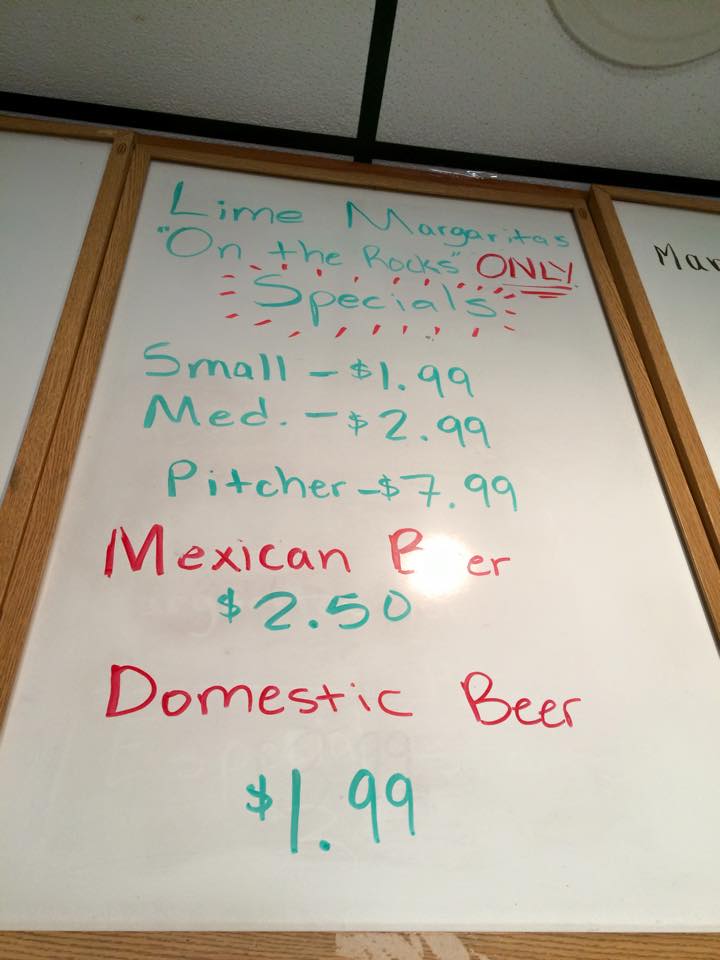 Lime Margaritas
"On the Rocks" ONLY
Specials
Small - $1.99
Med. - $2.99
Pitcher - $7.99
Mexican Beer
$2.50
Domestic Beer
$1.99